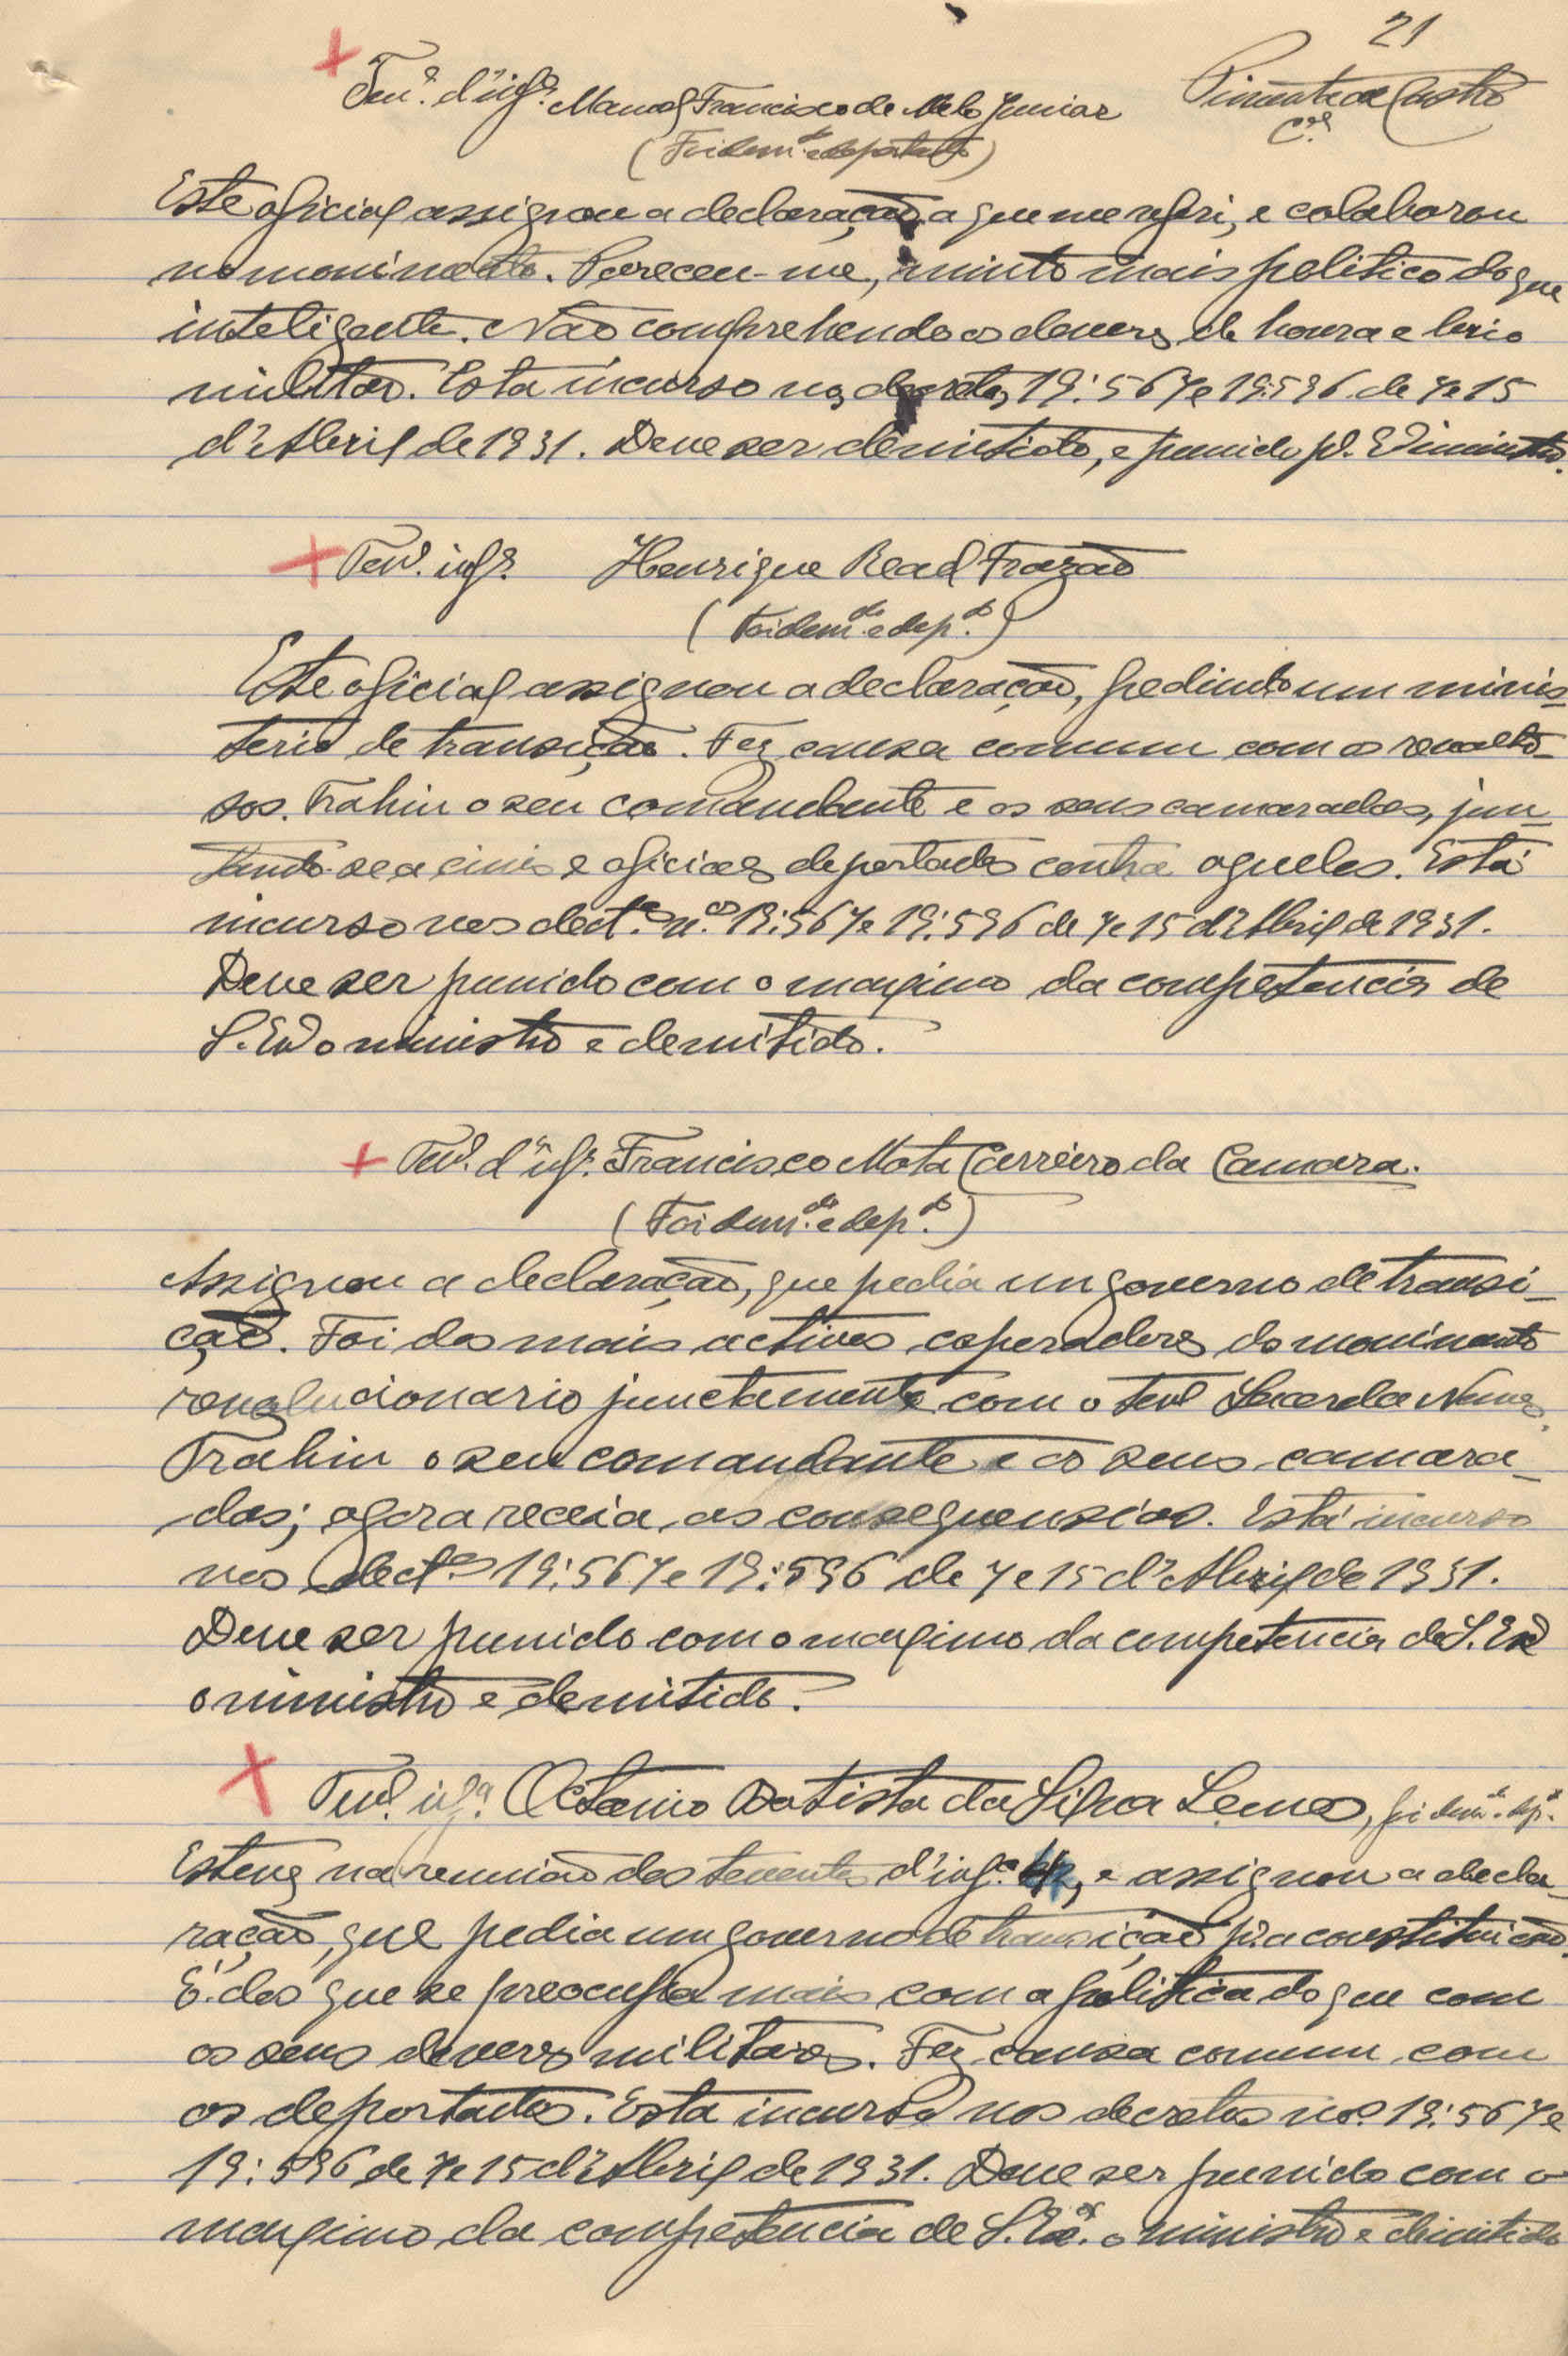 21
Pimenta de Castro
C.el
Ten.e d'inf.a Manoel Francisco de Melo Junior
(Foi dem.do e deportado)
Este oficial assignou a declaração a que me referi, e colaborou
no movimento. Pareceu-me, muito mais politico do que
inteligente. Não comprehende os deveres de honra e brio
militar. Está incurso nos decretos 19:567 e 19:596 de 7 e 15
d'Abril de 1931. Deve ser demitido, e punido p.
Ten.e inf.a Henrique Read Frazão
(Foi dem.do e dep.do)
Este oficial assignou a declaração, pedindo um minis-
terio de transição. Fez causa comum com os revolto-
sos. Trahiu o seu comandante e os seus camaradas, jun-
tando-se a civis e oficiaes deportados contra aqueles. Está
incurso nos dect.os n.os 19:567 e 19:596 de 7 e 15 d'Abril de 1931.
Deve ser punido com o maximo da competencia de
S. Ex.a o ministro e demitido.
Ten.e d'inf.a Francisco Mota Cerveiro da Camara.
(Foi dem.do e dep.do)
Assignou a declaração, que pedia um governo de transi-
ção. Foi dos mais activos coperadores do movimento
revolucionario junctamente com o ten.e Lacerda Nunes.
Trahiu o seu comandante e os seus camara-
das; agora receia as consequensias. Está incurso
nos dect.os 19:567 e 19:596 de 7 e 15 d'Abril de 1931.
Deve ser punido com o maximo da competencia de S. Ex.a
o ministro e demitido.
Ten.e inf.a Octavio Batista da Silva Lemos, foi dem.do e dep.do
Esteve na reunião dos tenentes d'inf.a e assignou a decla-
ração, que pedia um governo de transição p.a a constituição.
É dos que se preocupa mais com a politica do que com
os seus deveres militares. Fez causa comum com
os deportados. Está incurso nos decretos nos. 19:567 e
19:596 de 7 e 15 d'Abril de 1931. Deve ser punido com o
maximo da competencia de S. Ex.a o ministro e demitido